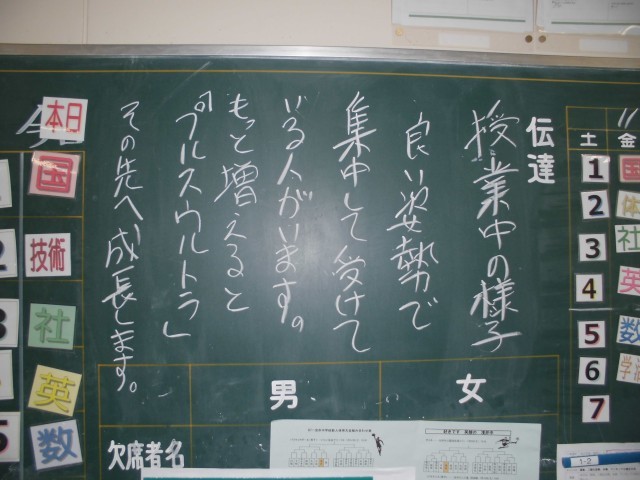 11
土 金
1 国
2
3 社
4 英
5 数
6 学
7
伝達
授業中の様子
良い姿勢で
集中して受けて
いる人がいます。
もっと増えると
「プルスウルトラ」
その先へ成長します。
女
男
欠席者名
本日
国
技術
社
英
数
1-2